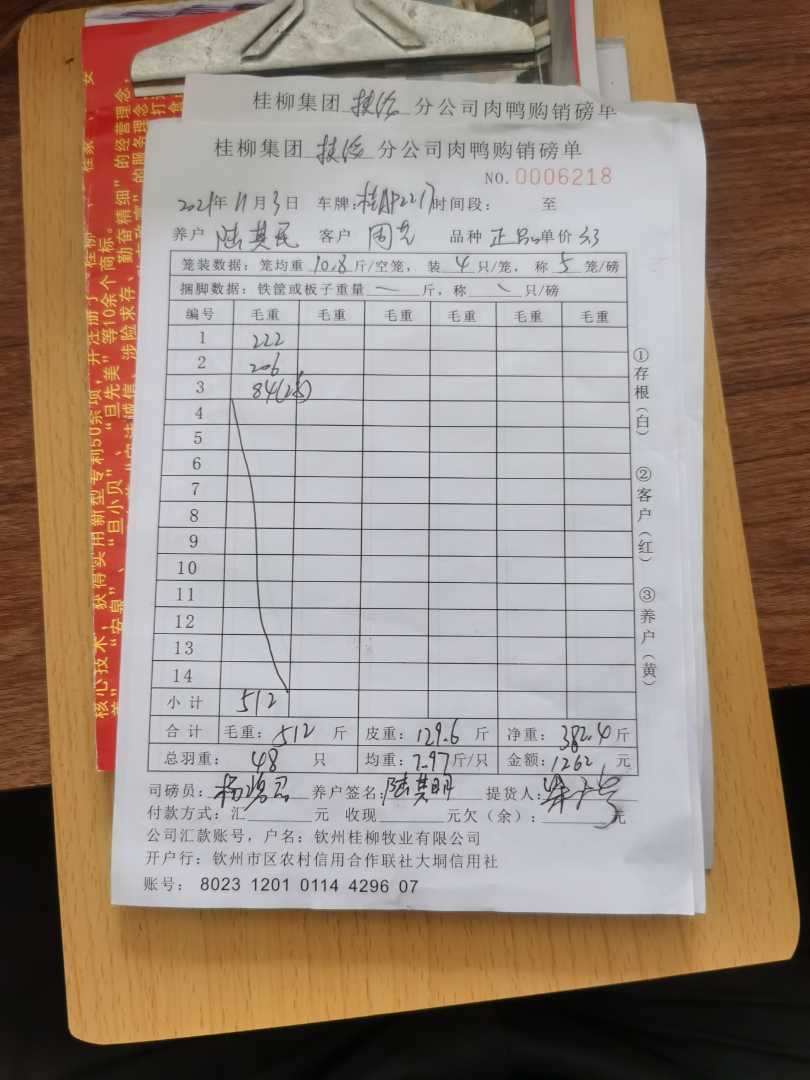 桂柳集团 技公 分公司肉鸭购销磅单
桂柳集团 分公司肉鸭购销磅单
NO.0006218
2021年11月3日 车牌: 时间段: 至
养户 陆其民 客户 周 品种 正品 单价 3.3
笼装数据:笼均重 10.8 斤/空笼,装 4 只/笼,称 5 笼/磅
捆脚数据:铁筐或板子重量 一 斤,称 、 只/磅
编号 毛重 毛重 毛重 毛重 毛重 毛重
1 222
2 206
3 84
4
5
6
7
8
9
10
11
12
13
14
小计 512
合计 毛重:512 斤 皮重:129.6 斤 净重:382.4 斤
总羽重:48 只 均重:7.97 斤/只 金额:1262 元
司磅员: 养户签名:陆其明 提货人:
付款方式:汇 元 收现 元欠(余): 元
公司汇款账号,户名:钦州桂柳牧业有限公司
开户行:钦州市区农村信用合作联社大垌信用社
账号: 8023 1201 0114 4296 07
①存根(白)
②客户(红)
③养户(黄)
核心技术,获得实用新型专利50余项,并注册了“桂柳
”、“安泉”、“旦小贝”、“旦先美”等10余个商标。
勤奋精细”的经营理念,
守法诚信、涉险求存、
的服务理念